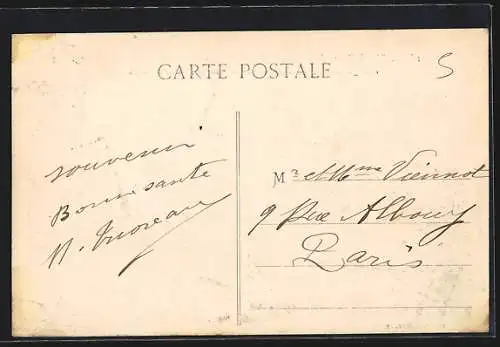 CARTE POSTALE
5
souvenir
Bonne santé
M et Mme Viennot
9 Rue Albouy
Paris